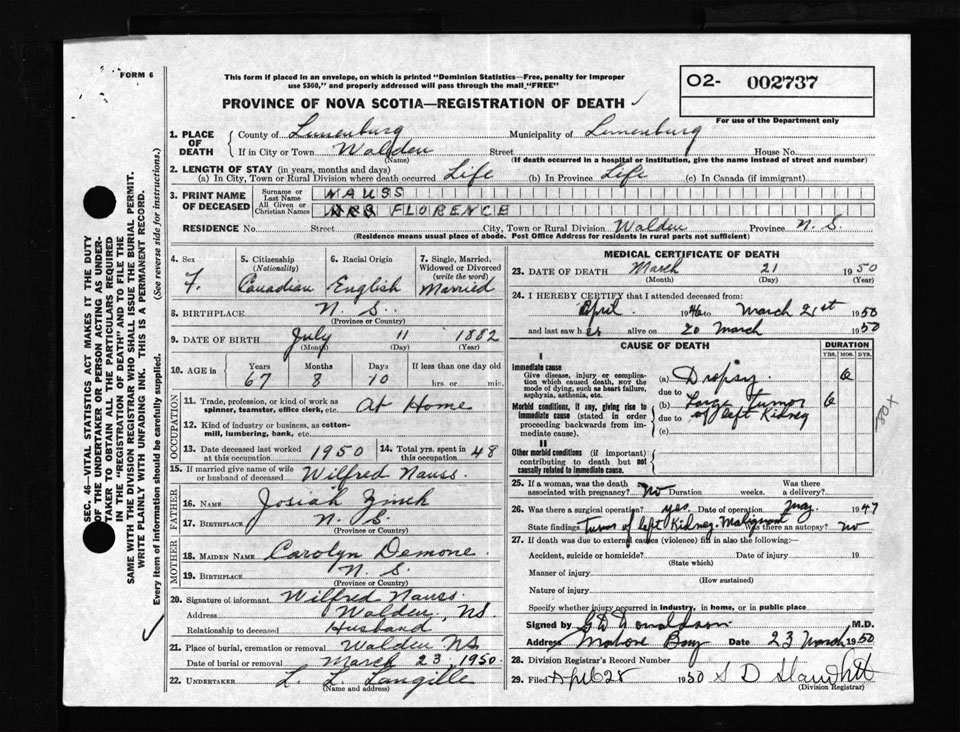 FORM 6
This form if placed in an envelope, on which is printed "Dominion Statistics—Free, penalty for improper
use $300," and properly addressed will pass through the mail "FREE"
O2- 002737
For use of the Department only
PROVINCE OF NOVA SCOTIA—REGISTRATION OF DEATH ✓
1. PLACE OF DEATH County of Lunenburg Municipality of Lunenburg
If in City or Town Walden (Name) Street House No.
(If death occurred in a hospital or institution, give the name instead of street and number)
2. LENGTH OF STAY (in years, months and days)
(a) In City, Town or Rural Division where death occurred Life (b) In Province Life (c) In Canada (if immigrant)
3. PRINT NAME OF DECEASED Surname or Last Name NAUSS
All Given or Christian Names FLORENCE
RESIDENCE No. Street City, Town or Rural Division Walden Province N. S.
(Residence means usual place of abode. Post Office Address for residents in rural parts not sufficient)
4. Sex F.
5. Citizenship (Nationality) Canadian
6. Racial Origin English
7. Single, Married, Widowed or Divorced (write the word) Married
8. BIRTHPLACE N. S.
(Province or Country)
9. DATE OF BIRTH July 11 1882
(Month) (Day) (Year)
10. AGE in Years 67 Months 8 Days 10 If less than one day old hrs. or min.
OCCUPATION
11. Trade, profession, or kind of work as spinner, teamster, office clerk, etc. At Home
12. Kind of industry or business, as cotton-mill, lumbering, bank, etc.
13. Date deceased last worked at this occupation 1950
14. Total yrs. spent in this occupation 48
15. If married give name of wife or husband of deceased Wilfred Nauss.
FATHER
16. NAME Josiah Zinck
17. BIRTHPLACE N. S.
(Province or Country)
MOTHER
18. MAIDEN NAME Carolyn Demone.
19. BIRTHPLACE N. S.
(Province or Country)
20. Signature of informant Wilfred Nauss.
Address Walden, NS
Relationship to deceased Husband
21. Place of burial, cremation or removal Walden NS.
Date of burial or removal March 23, 1950.
22. UNDERTAKER L. L. Langille
(Name and address)
MEDICAL CERTIFICATE OF DEATH
23. DATE OF DEATH March 21 1950
(Month) (Day) (Year)
24. I HEREBY CERTIFY that I attended deceased from:
April 1946 to March 21st 1950
and last saw her alive on 20 March 1950
CAUSE OF DEATH DURATION
YRS. MOS. DYS.
I
Immediate cause
Give disease, injury or complication which caused death, NOT the mode of dying, such as heart failure, asphyxia, asthenia, etc.
(a) Dropsy 6
due to
Morbid conditions, if any, giving rise to immediate cause (stated in order proceeding backwards from immediate cause).
(b) Large Tumor 6
due to of left Kidney
(c)
II
Other morbid conditions (if important) contributing to death but not causally related to immediate cause.
25. If a woman, was the death associated with pregnancy? No Duration weeks. Was there a delivery?
26. Was there a surgical operation? yes. Date of operation May 1947
State findings Tumor of left Kidney. Malignant Was there an autopsy? No
27. If death was due to external causes (violence) fill in also the following:—
Accident, suicide or homicide? Date of injury 19
(State which)
Manner of injury
(How sustained)
Nature of injury
Specify whether injury occurred in industry, in home, or in public place
Signed by G D Donaldson M.D.
Address Mahone Bay Date 23 March 1950
28. Division Registrar's Record Number
29. Filed April 28 1950 S D
(Division Registrar)
SEC. 46—VITAL STATISTICS ACT MAKES IT THE DUTY
OF THE UNDERTAKER OR PERSON ACTING AS UNDER-
TAKER TO OBTAIN ALL THE PARTICULARS REQUIRED
IN THE "REGISTRATION OF DEATH" AND TO FILE THE
SAME WITH THE DIVISION REGISTRAR WHO SHALL ISSUE THE BURIAL PERMIT.
WRITE PLAINLY WITH UNFADING INK. THIS IS A PERMANENT RECORD.
Every item of information should be carefully supplied. (See reverse side for instructions.)